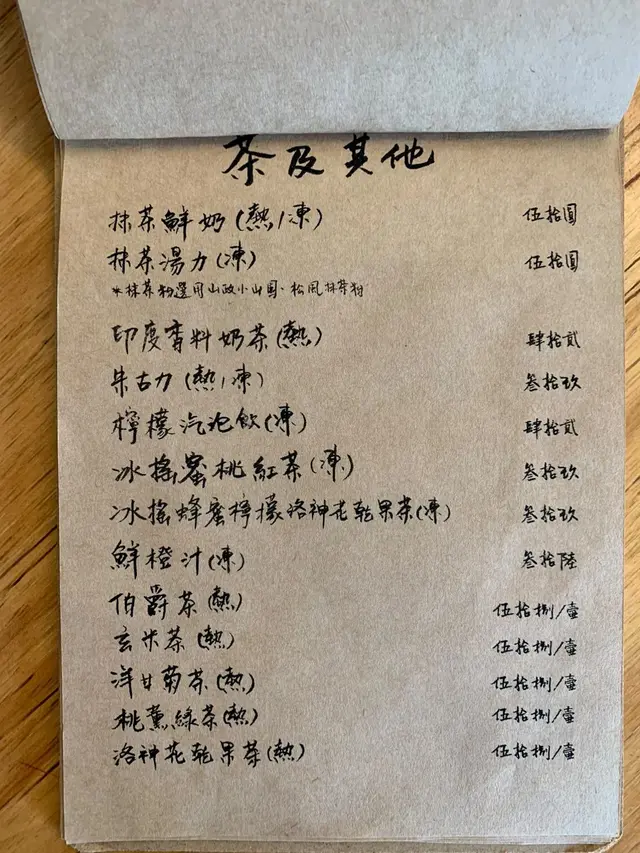 茶及其他
抹茶鮮奶(熱/凍) 伍拾圓
抹茶湯力(凍) 伍拾圓
*抹茶粉選用山政小山園・松風抹茶粉
印度香料奶茶(熱) 肆拾貳
朱古力(熱/凍) 叁拾玖
檸檬汽泡飲(凍) 肆拾貳
冰搖蜜桃紅茶(凍) 叁拾玖
冰搖蜂蜜檸檬洛神花乾果茶(凍) 叁拾玖
鮮橙汁(凍) 叁拾陸
伯爵茶(熱) 伍拾捌/壺
玄米茶(熱) 伍拾捌/壺
洋甘菊茶(熱) 伍拾捌/壺
桃薰綠茶(熱) 伍拾捌/壺
洛神花乾果茶(熱) 伍拾捌/壺